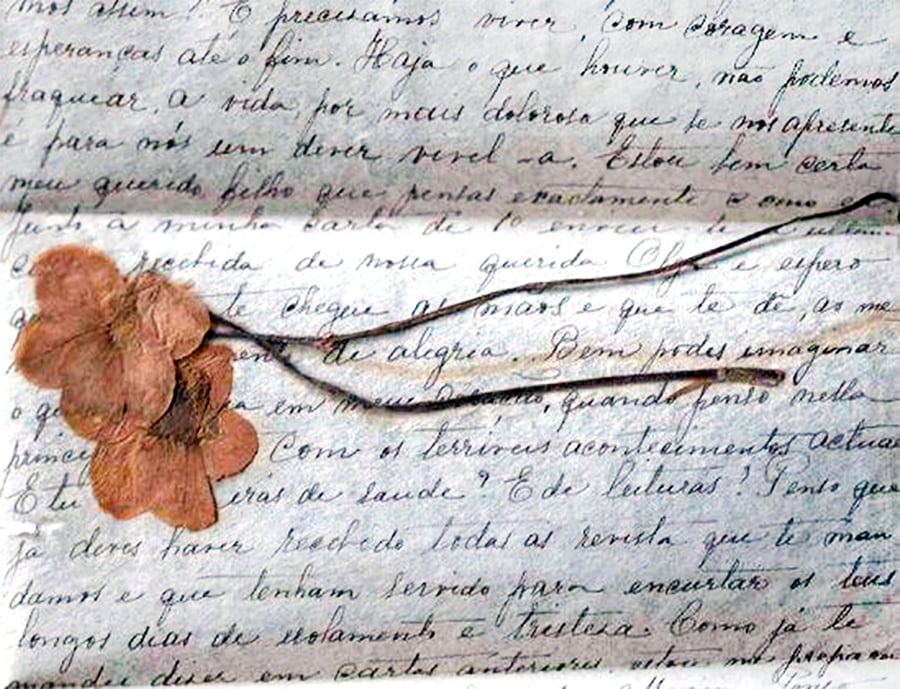 mos assim! E precisamos viver, com coragem e
esperanças até o fim. Haja o que houver, não podemos
fraquear, a vida, por mais dolorosa que se nos apresente
é para nós um dever vivel-a. Estou bem certa
meu querido filho que pensas exactamente como eu
Junto a minha carta de 1º enviei te
recebida de nossa querida Olga e espero
te chegue as mãos e que te dê, as me
de alegria. Bem podes imaginar
o em meu coração, quando penso nella
Com os terriveis acontecimentos actuaes
E tu de saude? E de leituras? Penso que
já deves haver recebido todas as revista que te man
damos e que tenham servido para encurtar os teus
longos dias de isolamento e tristesa. Como já te
mandei diser em cartas anteriores, estou me preparan